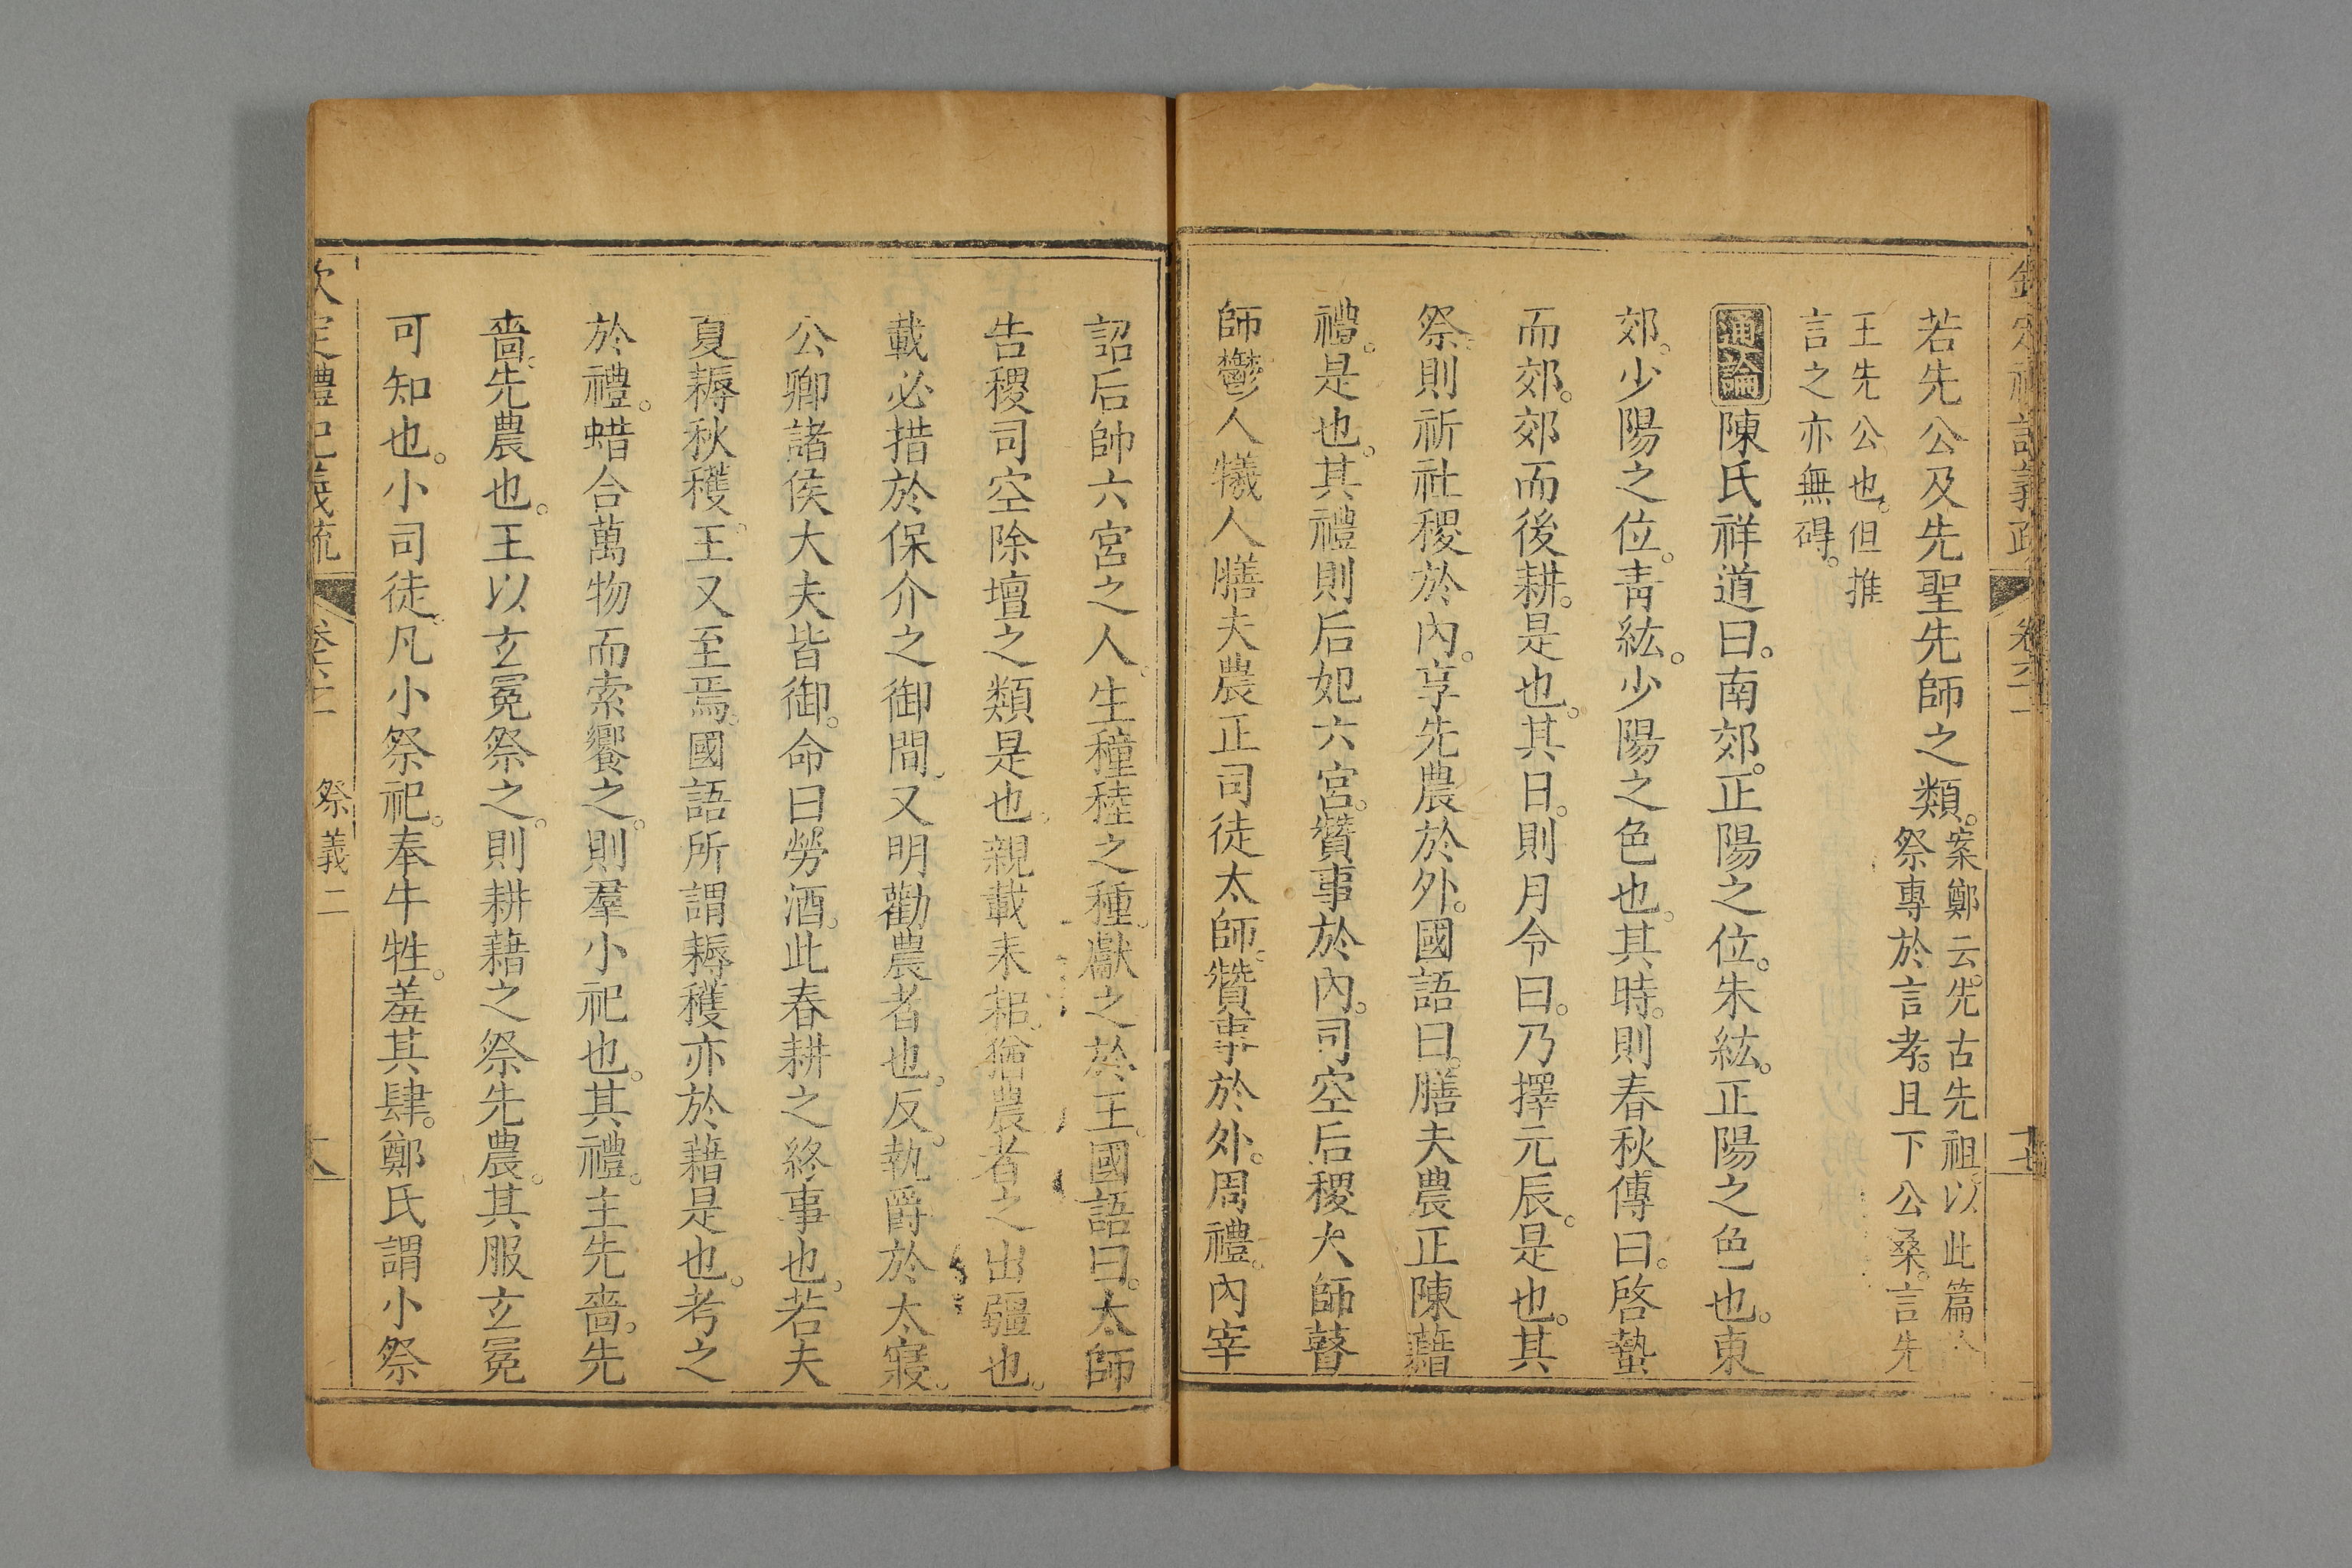 欽定禮記義疏 卷六十一 十七
若先公及先聖先師之類。案鄭云。先古先祖。以此篇
祭專於言孝。且下公桑。言先
王先公也。但推
言之亦無碍。
通論陳氏祥道曰。南郊。正陽之位。朱紘。正陽之色也。東
郊。少陽之位。靑紘。少陽之色也。其時。則春秋傳曰。啓蟄
而郊。郊而後耕。是也。其日。則月令曰。乃擇元辰。是也。其
祭。則祈社稷於內。享先農於外。國語曰。膳夫農正陳藉
禮。是也。其禮則后妃六宮。贊事於內。司空后稷大師瞽
師鬱人犧人膳夫農正司徒太師。贊事於外。周禮。內宰
詔后帥六宮之人。生穜稑之種。獻之於王。國語曰。太師
告稷司空除壇之類是也。親載耒耜。猶農者之出疆也。
載必措於保介之御間。又明勸農者也。反。執爵於太寢。
公卿諸侯大夫皆御。命曰勞酒。此春耕之終事也。若夫
夏耨秋穫。王又至焉。國語所謂耨穫亦於藉是也。考之
於禮。蜡合萬物而索饗之。則羣小祀也。其禮。主先嗇。先
嗇。先農也。王以玄冕祭之。則耕藉之祭先農。其服玄冕
可知也。小司徒。凡小祭祀。奉牛牲。羞其肆。鄭氏謂小祭
欽定禮記義疏 卷六十一 祭義二 十八